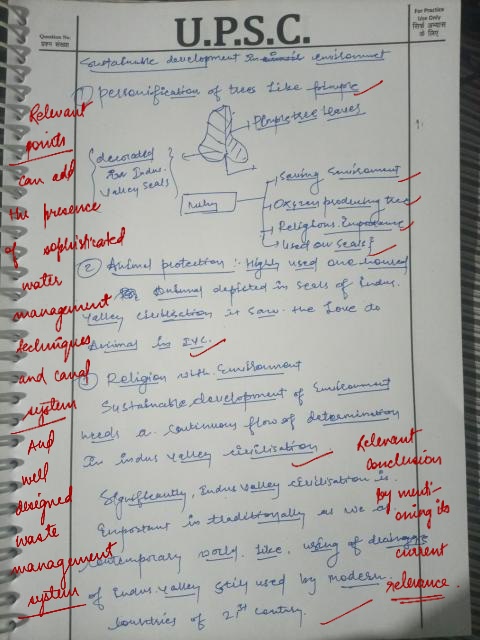 Question No.
प्रश्न संख्या
U.P.S.C.
For Practice
Use Only
सिर्फ अभ्यास
के लिए
Sustainable development in environment
1) Personification of trees like pimple
Plmps tree leaves
decorated
in Indus
Valley seals
Saving Environment
Oxygen producing tree
Religious Importance
Used on seals
2) Animal protection :- Highly used one horned
Animal depicted in seals of Indus
Valley civilisation is saw the love to
Animal in IVC.
3) Religion with Environment
Sustainable development of Environment
needs a continuous flow of determination
In indus valley civilisation
Significantly, Indus valley civilisation is
Important in traditionally as we
contemporary world. Like, using of drainage
of Indus valley still used by modern
countries of 21st century.
Relevant
points
can add
the presence
of sophisticated
water
management
techniques
and canal
system
And
well
designed
waste
management
system
Relevant
conclusion
by menti-
oning its
current
relevance.